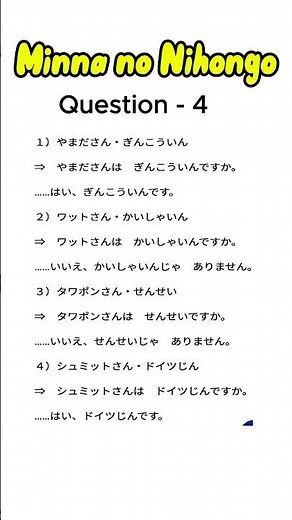 Minna no Nihongo
Question - 4
１）やまださん・ぎんこういん
⇒　やまださんは　ぎんこういんですか。
……はい、ぎんこういんです。
２）ワットさん・かいしゃいん
⇒　ワットさんは　かいしゃいんですか。
……いいえ、かいしゃいんじゃ　ありません。
３）タワポンさん・せんせい
⇒　タワポンさんは　せんせいですか。
……いいえ、せんせいじゃ　ありません。
４）シュミットさん・ドイツじん
⇒　シュミットさんは　ドイツじんですか。
……はい、ドイツじんです。